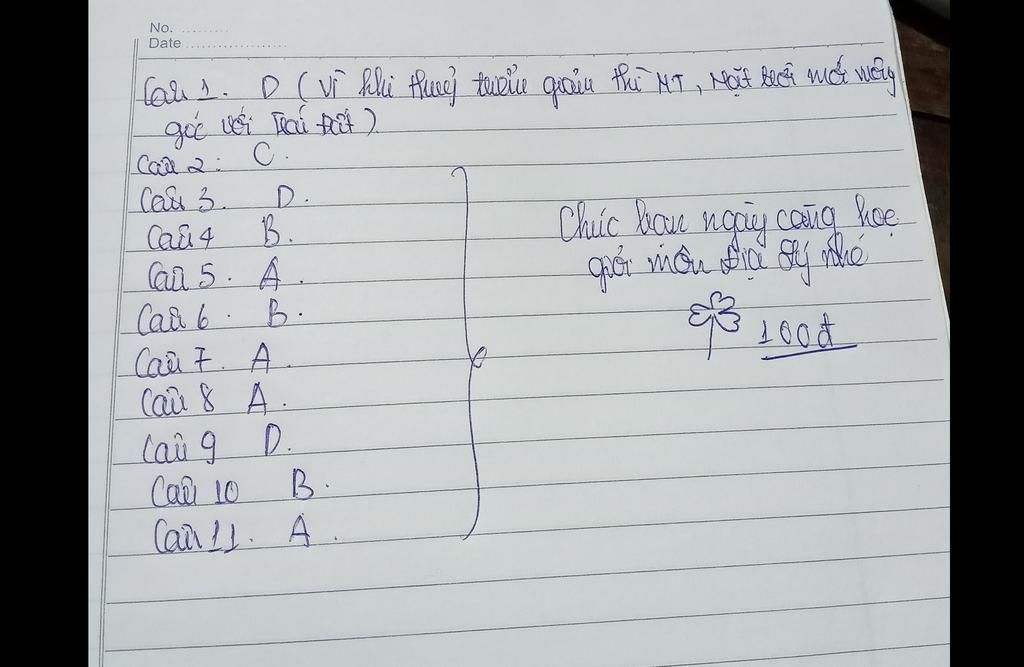 No. ..........
Date ....................
Câu 1. D (Vì khi thuỷ triều quân thì MT, Mặt trời mới vuông
góc với Trái Đất)
Câu 2: C.
Câu 3. D.
Câu 4 B.
Câu 5. A.
Câu 6. B.
Câu 7. A.
Câu 8 A.
Câu 9 D.
Câu 10 B.
Câu 11. A.
Chúc bạn ngày càng học
giỏi môn Địa lý nhé
100đ